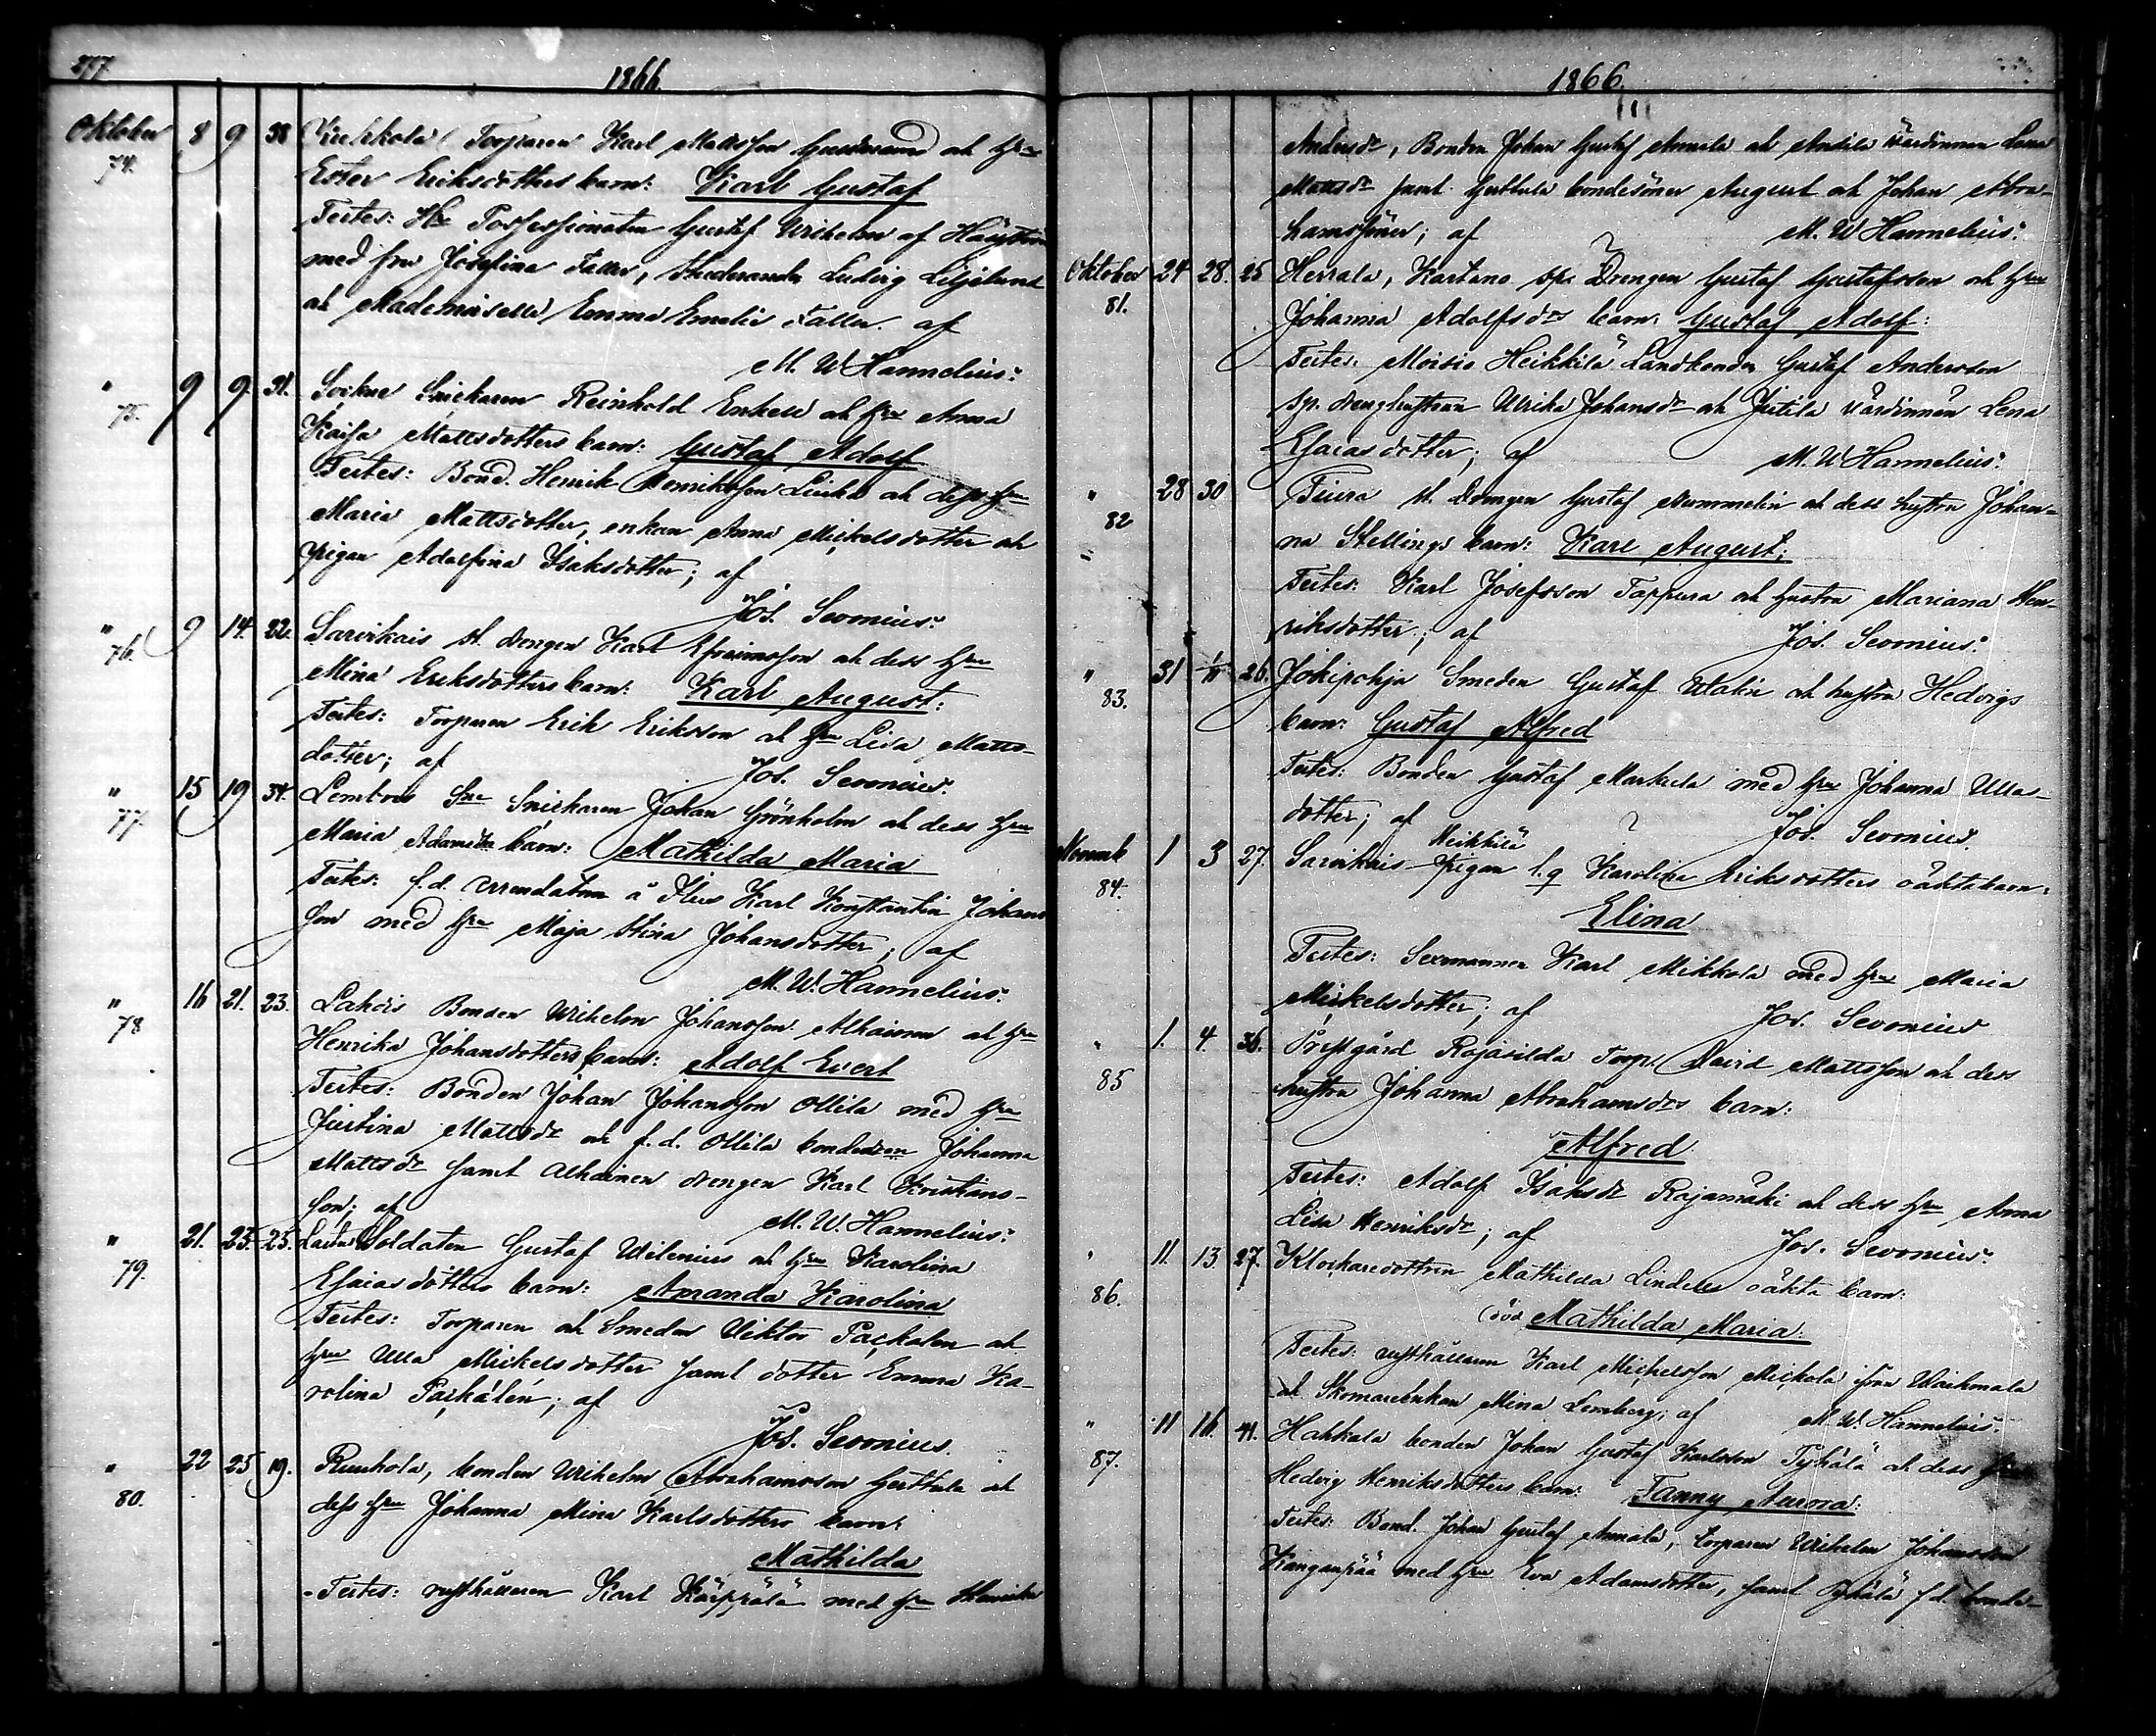 277
1866.
Oktober 74. 8 9 38 Torparen Karl Mattsson och Hru
Ester Eriksdotters barn: Karl Gustaf
Testes: Hr Possessionaten Gustaf Wilhelm af
med fru Josefina Faller, Studeranden Ludvig Liljelund
och Mademoiselle Emma Emelie Faller. af
M. W. Hannelius.
" 75. 9 9. 31. Snickaren Reinhold Enkell och Hru Anna
Kaisa Mattsdotters barn: Gustaf Adolf
Testes: Bond. Henrik Henriksson och dess Hru
Maria Mattsdotter, enkan Anna Mickelsdotter och
pigan Adolfina Isaksdotter; af
Jos. Sevonius.
" 76. 9 14. 22. Sarvikais st. drengen Karl Efraimsson och dess Hru
Mina Eriksdotters barn: Karl August:
Testes: Torparen Erik Eriksson och Hru Lisa Matts-
dotter; af Jos. Sevonius.
" 77. 15 19 34. Snickaren Johan Grönholm och dess Hru
Maria Adamsdrs barn: Mathilda Maria
Testes: f.d. Arrendatorn å Karl Konstantin Johans
son med Hru Maja Stina Johansdotter; af
M. W. Hannelius.
" 78 16 21. 23. Lahdis Bonden Wilhelm Johansson Alhainen och Hru
Henrika Johansdotters barn: Adolf Evert
Testes: Bonden Johan Johansson Ollila med Hru
Justina Mattsdr och f.d. Ollila Johanna
Mattsdr samt Alhainen drengen Karl Kristians-
son; af M. W. Hannelius.
" 79. 21. 23. 25. Soldaten Gustaf Wilenius och Hru Karolina
Esaiasdotters barn: Amanda Karolina
Testes: Torparen och Smeden Viktor Packalen och
Hru Ulla Mickelsdotter samt dotter Emma Ka-
rolina Packalén; af
Jos. Sevonius.
" 80. 22 25 19. Ruuhola, bonden Wilhelm Abrahamsson Gerttula och
dess Hru Johanna Mina Karlsdotters barn:
Mathilda
Testes: rusthållaren Karl Kärppälä med Hru
1866.
Andersdr, Bonden Johan Gustaf Annala och Anttila värdinnan Lena
Mattsdr samt Gerttula bondesöner August och Johan Abra-
hamssöner; af M. W. Hannelius.
Oktober 81. 24 28. 25 Herrala, Kartano sp. Drengen Gustaf Gustafsson och Hru
Johanna Adolfsdrs barn: Gustaf Adolf:
Testes: Moisio Heikkilä Landbonden Gustaf Andersson
sp. drenghustrun Ulrika Johansdr och värdinnan Lena
Esaiasdotter; af M. W. Hannelius.
" 82 28 30 st. Drengen Gustaf Nummelin och dess hustru Johan-
na Stellings barn: Karl August;
Testes: Karl Josefsson Tappura och hustru Mariana Hen-
riksdotter; af Jos. Sevonius.
" 83. 31 1/11 26. Jokipohja Smeden Gustaf och hustru Hedvigs
barn: Gustaf Alfred
Testes: Bonden Gustaf Markula med Hru Johanna Ullas-
dotter; af Jos. Sevonius.
Novemb 84. 1 3 27. Sarvikais Heikkilä pigan Karolina Eriksdotters oäktabarn:
Elina
Testes: Sexmannen Karl Mikkola med Hru Maria
Mickelsdotter; af Jos. Sevonius
" 85 1. 4. 36. Prestgård Rajasilda Torp. David Mattsson och dess
hustru Johanna Abrahamsdrs barn:
Alfred
Testes: Adolf Isaksdr Rajamäki och dess Hru Anna
Lisa Henriksdr; af Jos. Sevonius.
" 86. 11. 13. 27. Klockaredottren Mathilda Lindells oäkta barn:
död Mathilda Maria.
Testes: rusthållaren Karl Mickelsson Mickola ifrån
och Skomareenkan Mina Lemberg; af M. W. Hannelius.
" 87. 11 16. 41. Hahkala bonden Johan Gustaf Karlsson Tyhälä och dess Hru
Hedvig Henriksdotters barn: Fanny Aurora.
Testes: Bond. Johan Gustaf Annala, torparen Wilhelm Johansson
Kanganpää med Hru Eva Adamsdotter, samt Tyhälä f.d. bonde-